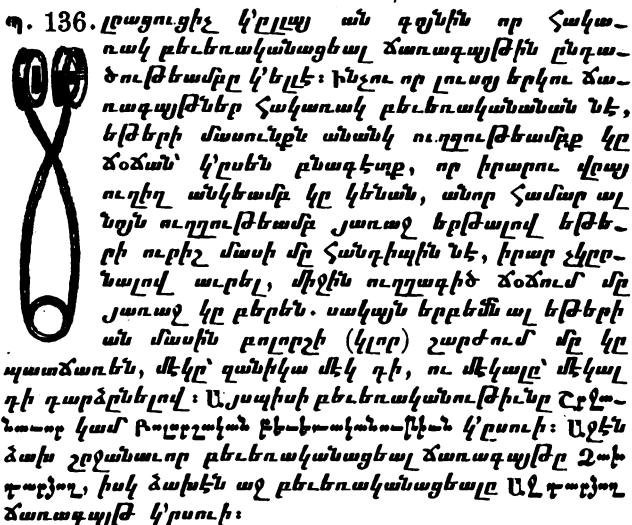 Պ. 136. լրացուցիչ կ'ըլլայ ան գոյնին որ Հակա֊
ռակ բեւեռականացեալ ճառագայթին ընդա֊
ծութեամբը կ'ելլէ։ Ինչու որ լուսոյ երկու ճա֊
ռագայթներ Հակառակ բեւեռականանան նէ,
եթերի մասունքն անանկ ուղղութեամբք կը
ճօճան՝ կ'ըսեն բնագէտք, որ իրարու վրայ
ուղիղ անկեամբ կը կենան, անոր Համար ալ
նոյն ուղղութեամբ յառաջ երթալով եթե֊
րի ուրիշ մասի մը Հանդիպին նէ, իրար չկըր֊
նալով աւրել, միջին ուղղագիծ ճօճում մը
յառաջ կը բերեն. սակայն երբեմն ալ եթերի
ան մասին բոլորշի (կլոր) շարժում մը կը
պատճառեն, մէկը՝ զանիկա մէկ դի, ու մէկալը՝ մէկալ
դի դարձընելով։ Այսպիսի բեւեռականութիւնը Շրջա֊
նաւոր կամ Բոլորշական բեւեռականութիւն կ'ըսուի։ Աջէն
ձախ շրջանաւոր բեւեռականացեալ ճառագայթը Ձախ
դարձող, իսկ ձախէն աջ բեւեռականացեալը Աջ դարձող
ճառագայթ կ'ըսուի։